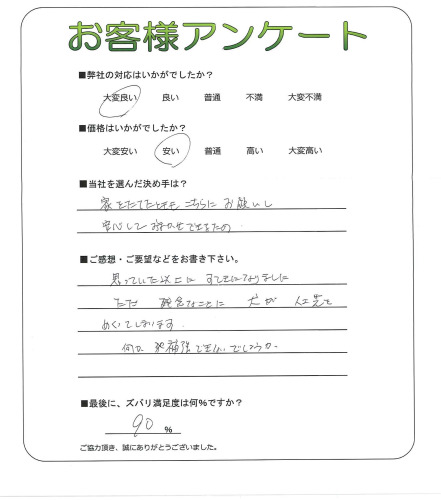 お客様アンケート
■弊社の対応はいかがでしたか？
大変良い 良い 普通 不満 大変不満
■価格はいかがでしたか？
大変安い 安い 普通 高い 大変高い
■当社を選んだ決め手は？
家をたてたときも こちらに お願いし
安心して おまかせできたの
■ご感想・ご要望などをお書き下さい。
思っていた以上に すてきになりました
ただ 残念なことに 犬が 人工芝を
めくてしまいます．
何か 補強できないでしょうか．
■最後に、ズバリ満足度は何％ですか？
90 %
ご協力頂き、誠にありがとうございました。